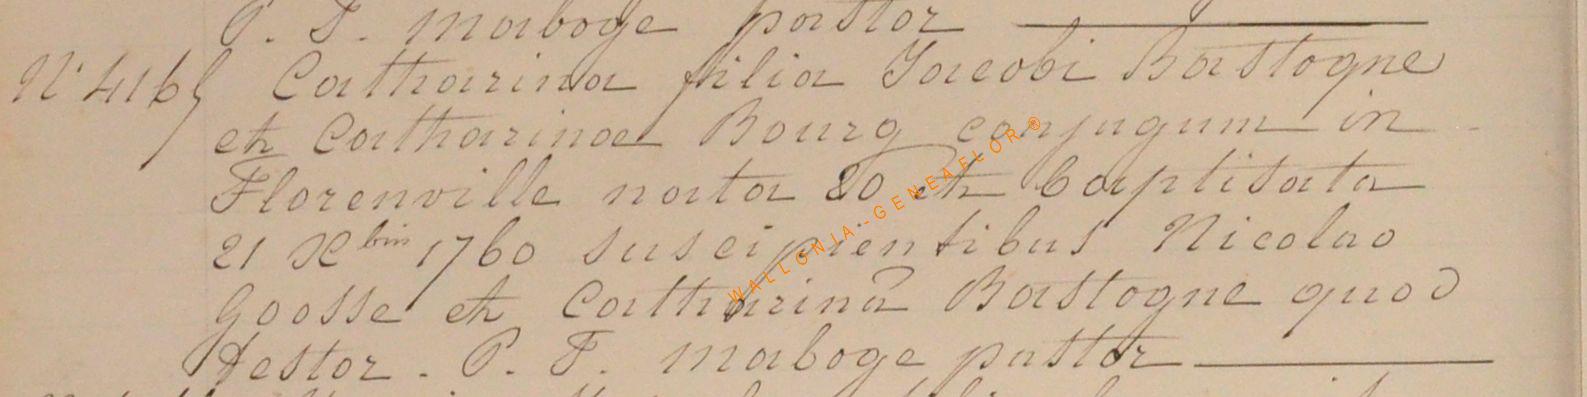 P. F. maboge pastor
N° 4165 Catharina filia Jacobi Bastogne
et Catharinae Bourg conjugum in
Florenville nata 20 et baptisata
21 Xbris 1760 suscipientibus Nicolao
Goosse et Catharina Bastogne quod
testor. P. F. maboge pastor
WALLONIA--GENEAFLOR®